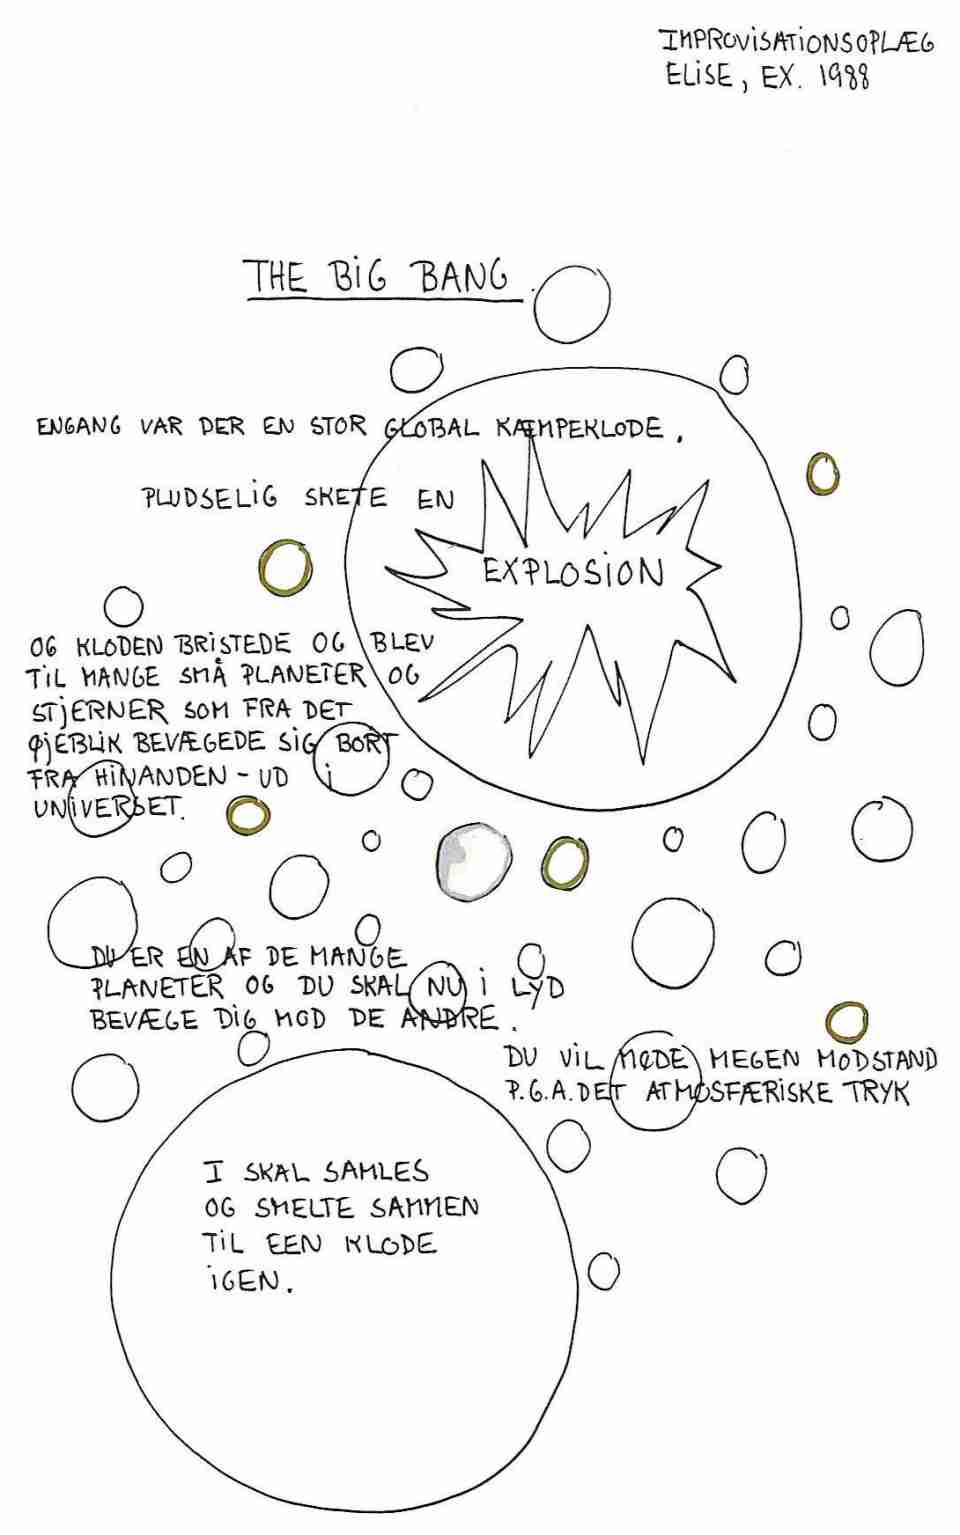 IMPROVISATIONSOPLÆG
ELISE, EX. 1988
THE BIG BANG
ENGANG VAR DER EN STOR GLOBAL KÆMPEKLODE.
PLUDSELIG SKETE EN
EXPLOSION
OG KLODEN BRISTEDE OG BLEV
TIL MANGE SMÅ PLANETER OG
STJERNER SOM FRA DET
ØJEBLIK BEVÆGEDE SIG BORT
FRA HINANDEN - UD i
UNIVERSET.
DU ER EN AF DE MANGE
PLANETER OG DU SKAL NU i LYD
BEVÆGE DIG MOD DE ANDRE.
DU VIL MØDE MEGEN MODSTAND
P.G.A. DET ATMOSFÆRISKE TRYK
I SKAL SAMLES
OG SMELTE SAMMEN
TIL EEN KLODE
IGEN.